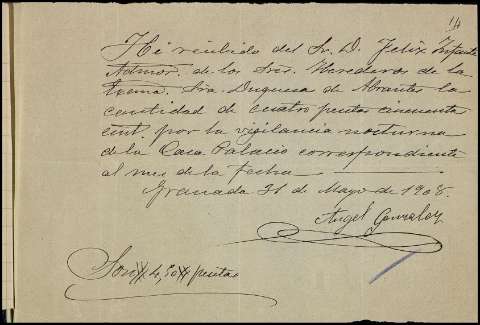 14
He recibido del Sr. D. Felix Infante
Admor. de los Sres. Herederos de la
Excma. Sra. Duquesa de Abrantes la
cantidad de cuatro pesetas cincuenta
cent. por la vigilancia nocturna
de la Casa Palacio correspondiente
al mes de la fecha
Granada 31 de Mayo de 1908.
Angel Gonzalez
Son 4,50 pesetas